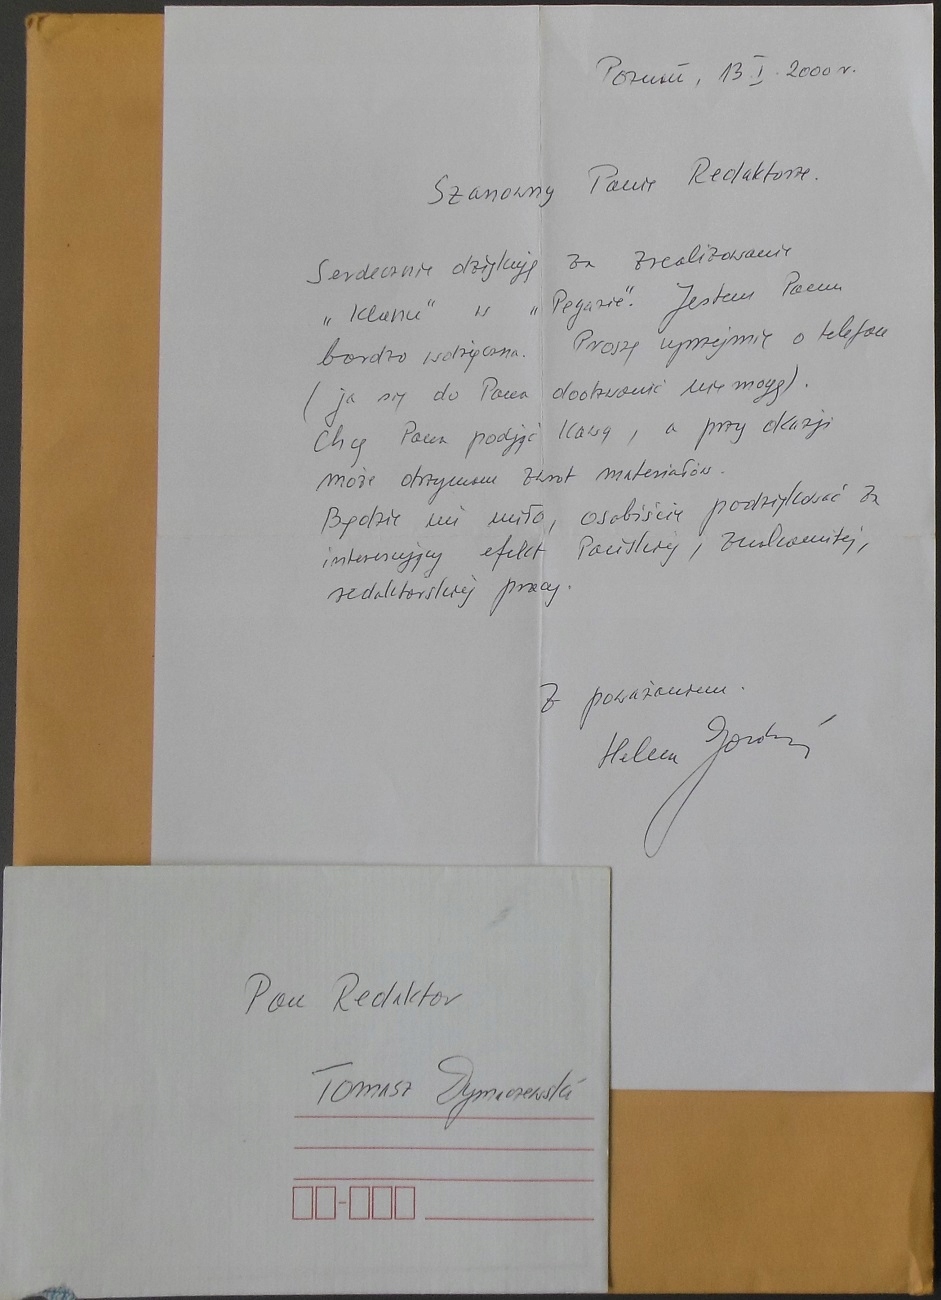 Poznań, 13 I. 2000 r.
Szanowny Panie Redaktorze.
Serdecznie dziękuję za zrealizowanie
„Klanu” w „Pegazie”. Jestem Panu
bardzo wdzięczna. Proszę uprzejmie o telefon
(ja się do Pana dodzwonić nie mogę).
Chcę Pana podjąć kawą, a przy okazji
może otrzymam zwrot materiałów.
Będzie mi miło, osobiście podziękować za
interesujący efekt Pańskiej, znakomitej,
redaktorskiej pracy.
Z poważaniem.
Helena
Pan Redaktor
Tomasz